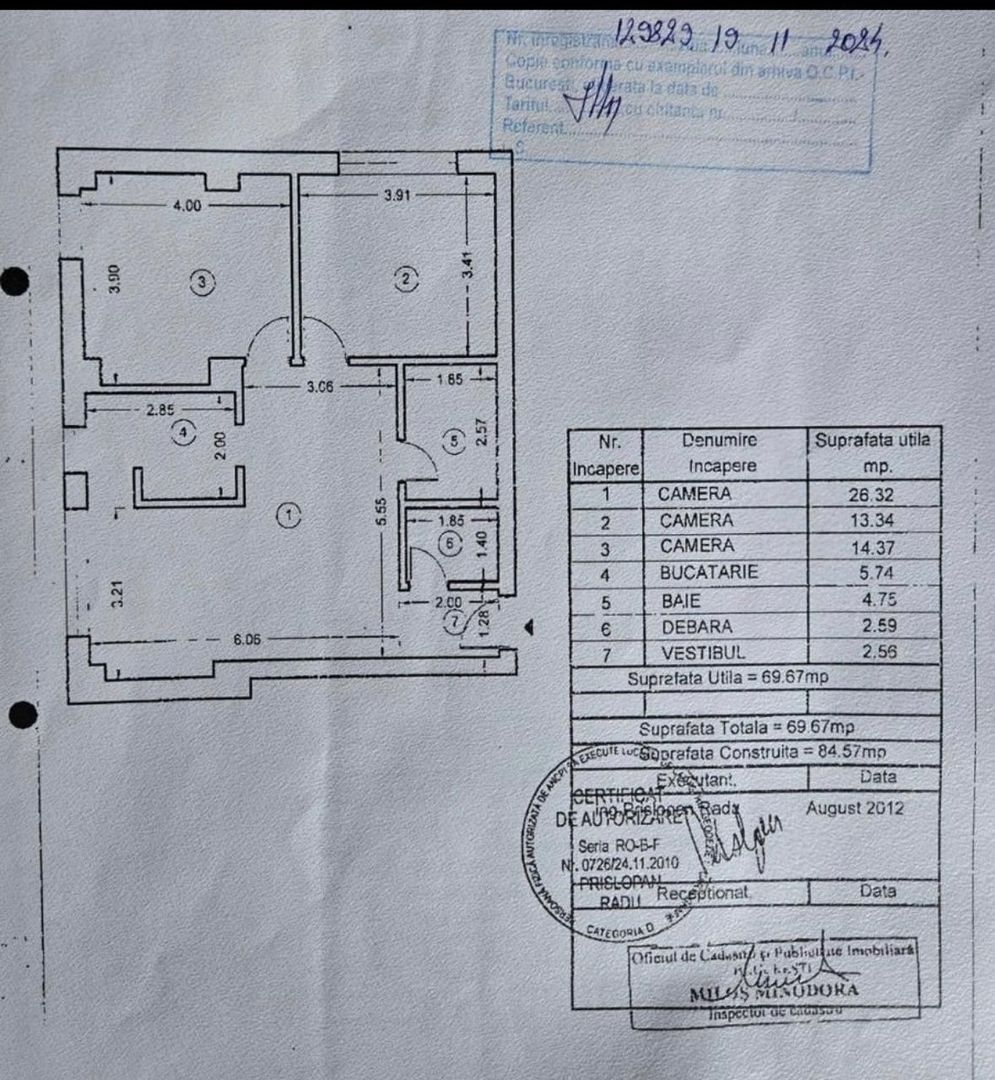 129829 19 11 2024.
Nr. inregistrare ziua luna anul
Copie conforma cu exemplarul din arhiva O.C.P.I.-
Bucuresti, eliberata la data de
Tariful cu chitanta nr. /
Referent
S.
4.00
3.91
3.90
3
2
3.41
3.06
1.85
2.85
4
2.00
5
2.57
5.55
1
1.85
6
1.40
3.21
2.00
7
1.28
6.06
Nr. Incapere Denumire Incapere Suprafata utila mp.
1 CAMERA 26.32
2 CAMERA 13.34
3 CAMERA 14.37
4 BUCATARIE 5.74
5 BAIE 4.75
6 DEBARA 2.59
7 VESTIBUL 2.56
Suprafata Utila = 69.67mp
Suprafata Totala = 69.67mp
Suprafata Construita = 84.57mp
Executant, Data
ing. Prislopan Radu August 2012
PERSOANĂ FIZICĂ AUTORIZATĂ DE ANCPI SĂ EXECUTE
CERTIFICAT
DE AUTORIZARE
Seria RO-B-F
Nr. 0726/24.11.2010
PRISLOPAN
RADU
CATEGORIA D
Receptionat Data
Oficiul de Cadastru şi Publicitate Imobiliară
BUCUREŞTI
MILOŞ MINODORA
Inspector de cadastru